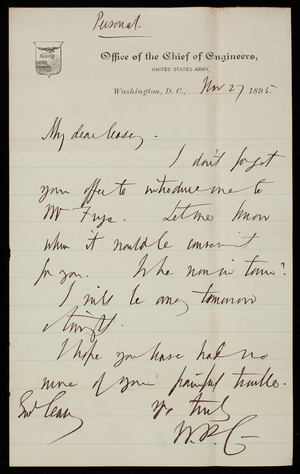 Personal.
Office of the Chief of Engineers,
UNITED STATES ARMY,
Washington, D. C., Nov 27 1895
My dear Casey,
I don't forget
your offer to introduce me to
Mr Frye. Let me know
when it would be convenient
for you. Is he now in town?
I will be away tomorrow
& tonight.
I hope you have had no
more of your painful trouble.
Yrs truly
W. P. C
Casey